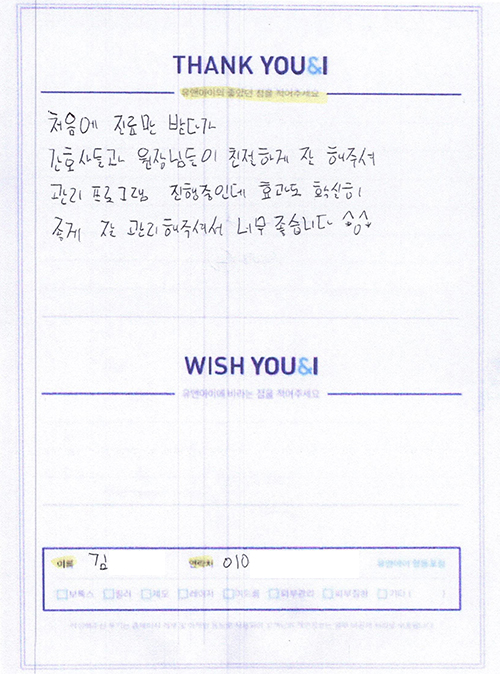 THANK YOU&I
유앤아이의 좋았던 점을 적어주세요
처음에 진료만 받다가
간호사들과 원장님들이 친절하게 잘 해주셔
관리 프로그램 진행중인데 효과도 확실히
좋게 잘 관리해주셔서 너무 좋습니다
WISH YOU&I
유앤아이에 바라는 점을 적어주세요
이름 김 연락처 010 유앤아이
보톡스 필러 제모 레이저 여드름 피부관리 피부질환 기타 ( )